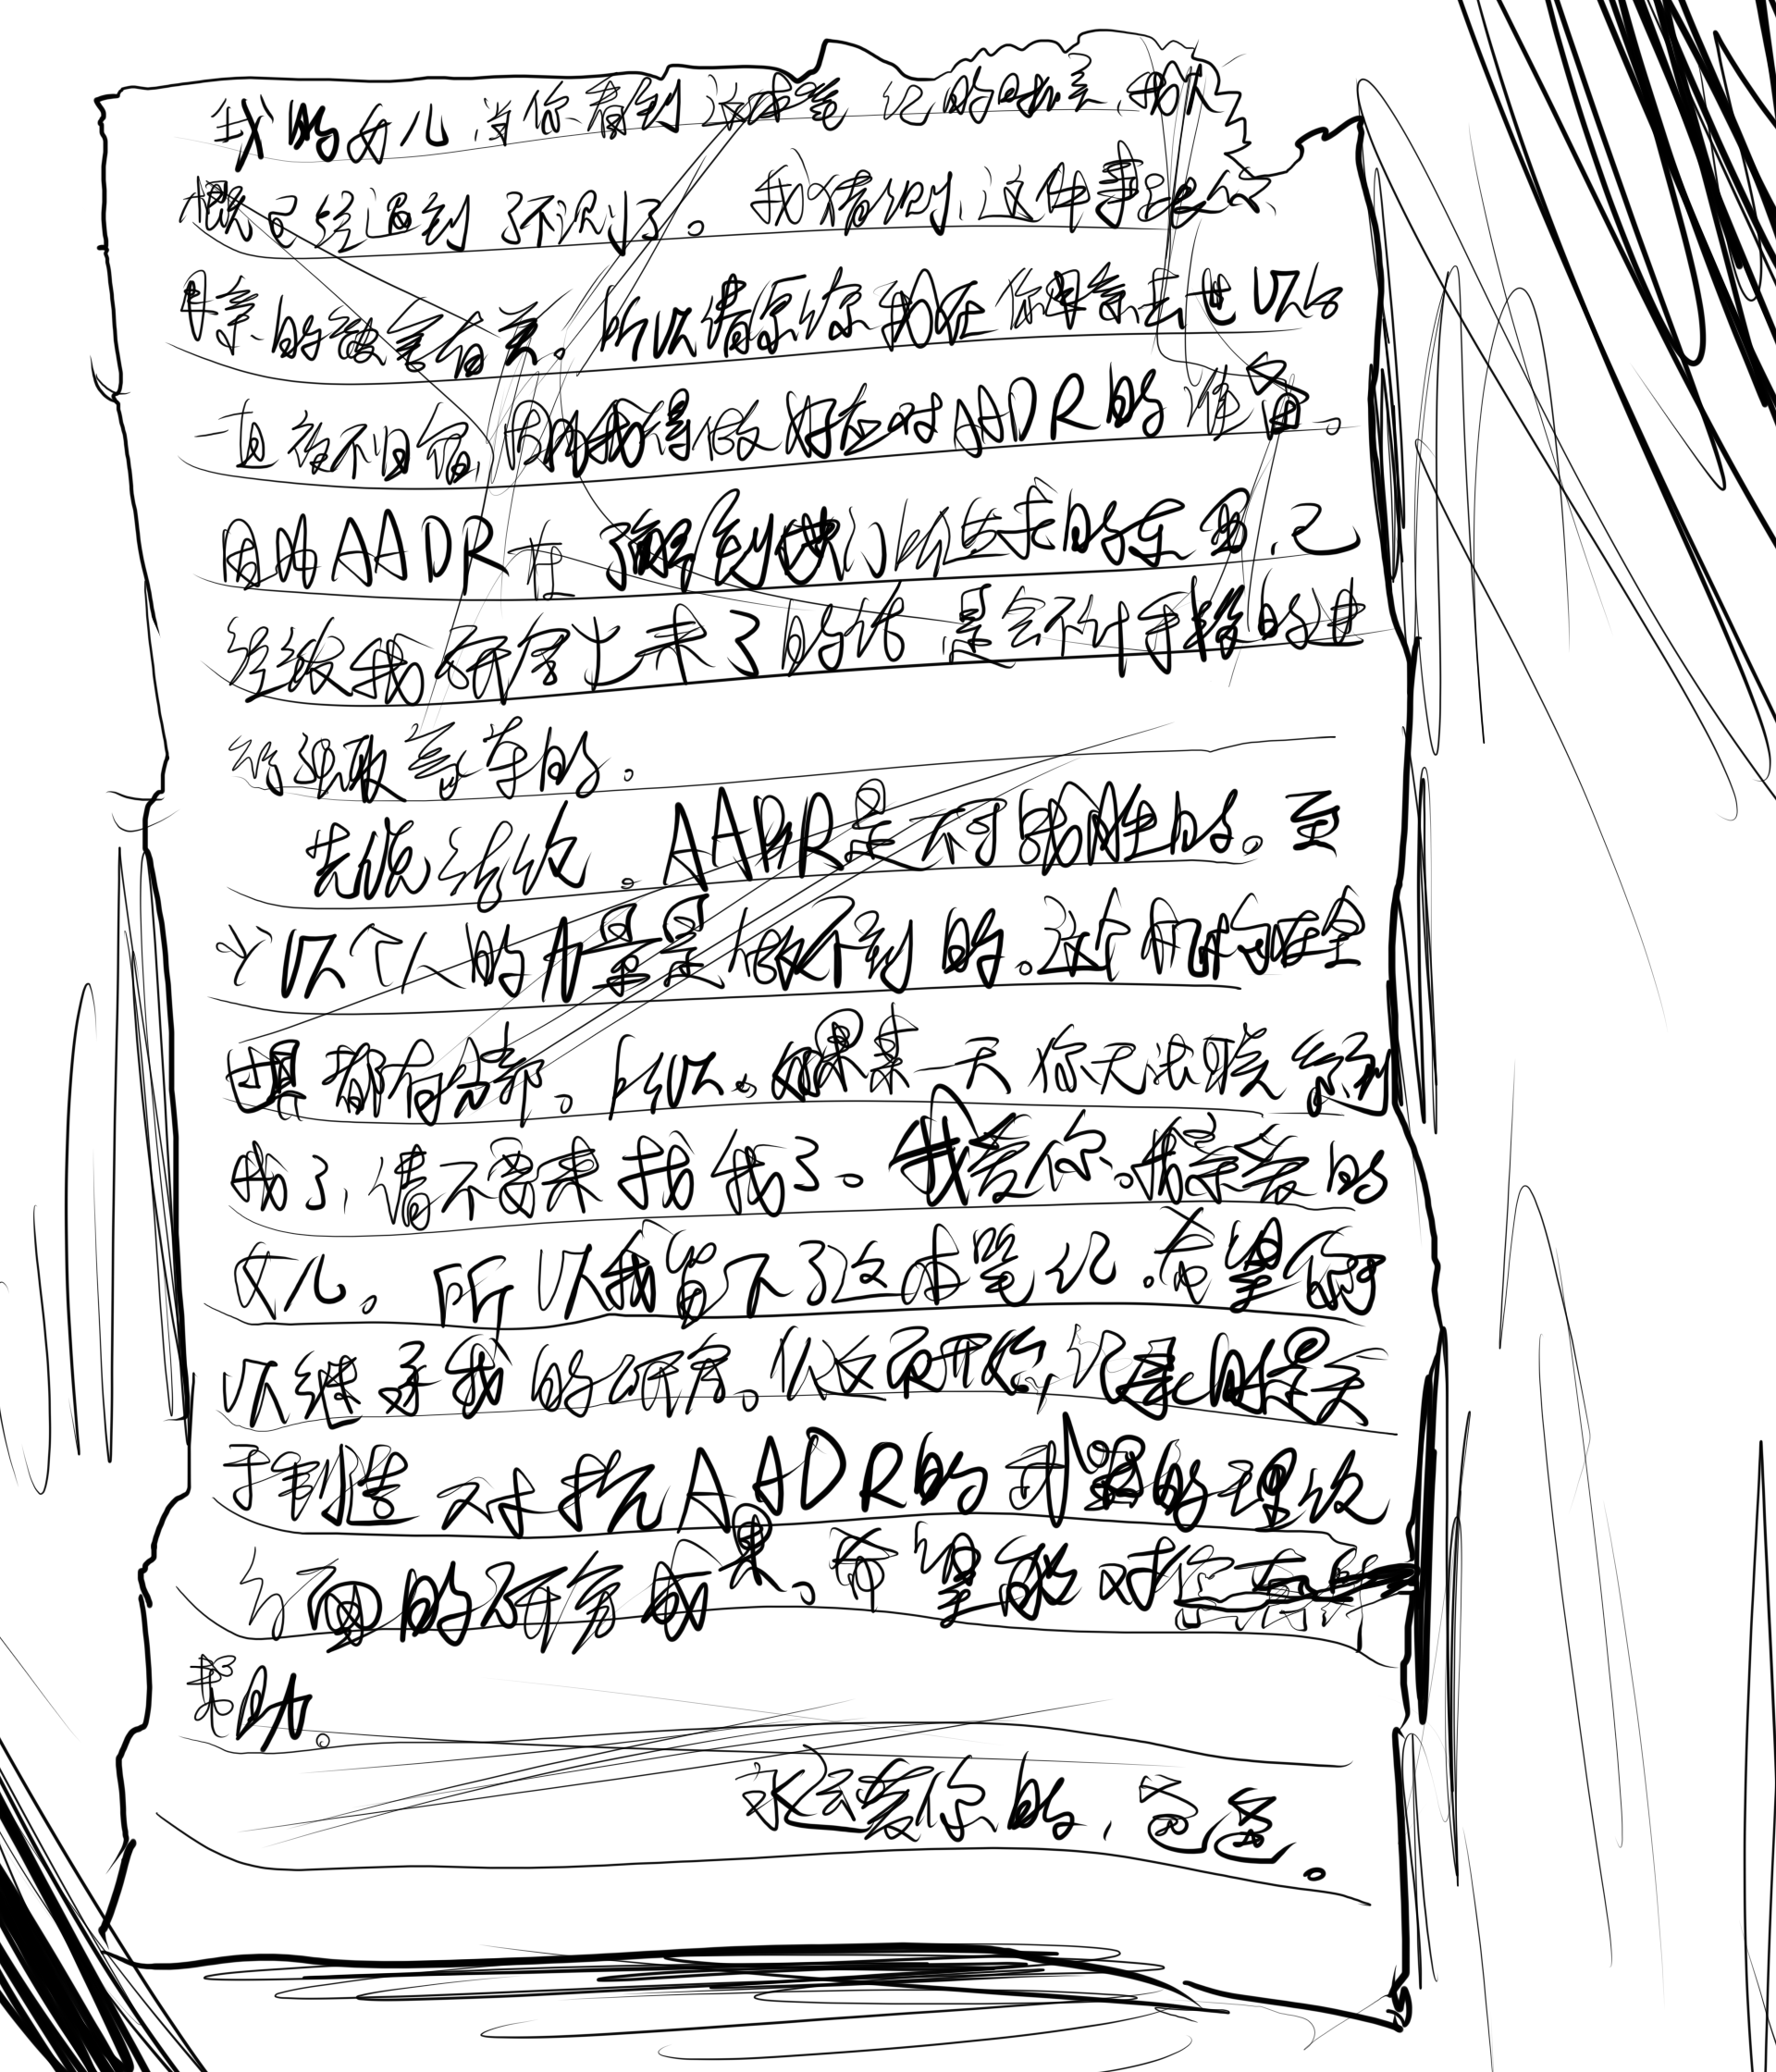 我的女儿,当你看到这本笔记的时候,我大
概已经遇到了不测了。我猜测,这件事跟你
母亲的被害有关。所以请原谅我在你母亲去世以后
一直夜不归宿,因为我得做好应对AADR的准备。
因为AADR在了解到他们所追求的东西,已
经被我研究出来了的话,是会不计手段的进
行采取的。
先说结论。AADR是不可战胜的。至
少以个人的力量是做不到的。这个机构在全
世界都有分部。所以。如果某一天你无法联系到
我了,请不要来找我了。我爱你。我亲爱的
女儿。所以我留下了这本笔记。希望你可
以继承我的研究。从反页开始,记录的是关
于制造对抗AADR的武器的理论
方面的研究成果。希望能对你有些
帮助。
永远爱你的,爸爸。